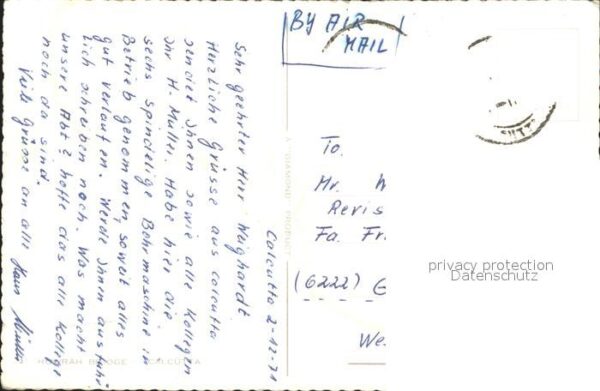 Calcutta 2-12-71
Sehr geehrter Herr Weighardt
Herzliche Grüsse aus Calcutta
sendet Ihnen sowie alle Kollegen
Ihr H-Müller. Habe hier die
sechs spindelige Bohrmaschine in
Betrieb genommen, soweit alles
gut verlaufen. Werde Ihnen ausführ
lich schreiben noch. Was macht
unsere Abt? hoffe das alle Kollegen
noch da sind.
Viele Grüsse an alle
Hans Müller
HOWRAH BRIDGE CALCUTTA
A "DIAMOND" PRODUCT
BY AIR
MAIL
To.
Mr. W
Revis
Fa. Fr
(6222) G
We
privacy protection
Datenschutz